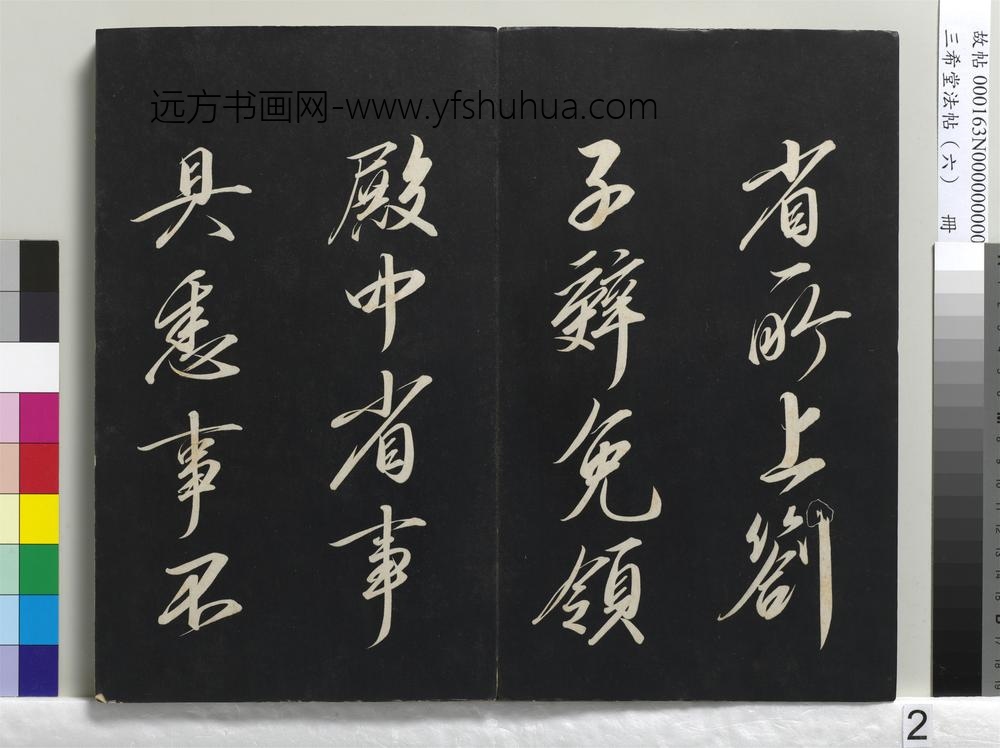 省所上劄
子辭免領
殿中省事
具悉事不
远方书画网-www.yfshuhua.com
故帖 000163N000000000
三希堂法帖（六） 冊
2